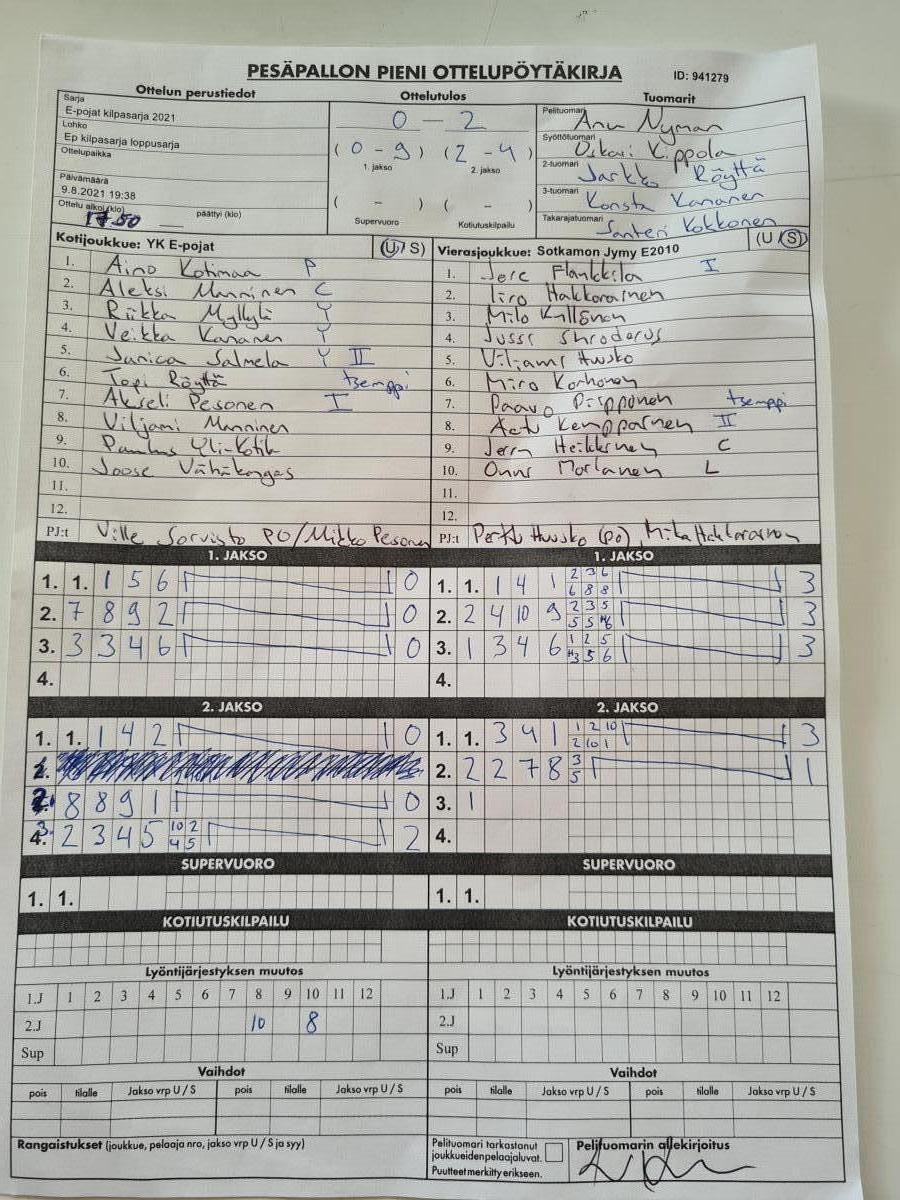 PESÄPALLON PIENI OTTELUPÖYTÄKIRJA ID: 941279
Ottelun perustiedot Ottelutulos Tuomarit
Sarja
E-pojat kilpasarja 2021
Lohko
Ep kilpasarja loppusarja
Ottelupaikka
Päivämäärä
9.8.2021 19:38
Ottelu alkoi (klo) 17.50 päättyi (klo)
0 - 2
(0 - 9) (2 - 4)
1. jakso 2. jakso
( - ) ( - )
Supervuoro Kotiutuskilpailu
Pelituomari Anu Nyman
Syöttötuomari Oskari Kippola
2-tuomari Jarkko Röyttä
3-tuomari Konsta Kananen
Takarajatuomari Santeri Kokkonen
Kotijoukkue: YK E-pojat (U/S)
1. Aino Kotimaa P
2. Aleksi Manninen C
3. Riikka Myllylä Y
4. Veikka Kananen Y
5. Janica Salmela Y II
6. Topi Röyttä tsemppi
7. Akseli Pesonen I
8. Viljami Manninen
9. Paulus Yli-Kotila
10. Joose Vähäkangas
11.
12.
PJ:t Ville Sorvisto PO/Mikko Pesonen
Vierasjoukkue: Sotkamon Jymy E2010 (U/S)
1. Jere Flankkila I
2. Iiro Hakkarainen
3. Milo Kyllönen
4. Jussi Shroderus
5. Viljami Huusko
6. Miro Korhonen
7. Paavo Piipponen tsemppi
8. Aatu Kemppainen II
9. Jerry Heikkinen C
10. Onni Moilanen L
11.
12.
PJ:t Perttu Huusko (PO), Mika Hakkarainen
1. JAKSO 1. JAKSO
1. 1. 1 5 6 0
2. 7 8 9 2 0
3. 3 3 4 6 0
4.
1. 1. 1 4 1 2 3 6 3
6 8 8
2. 2 4 10 9 2 3 5 3
5 5
3. 1 3 4 6 1 2 5 3
5 6
4.
2. JAKSO 2. JAKSO
1. 1. 1 4 2 0
2. 8 8 9 1 0
3. 2 3 4 5 10 2 2
4 5
1. 1. 3 4 1 1 2 10 3
2 10 1
2. 2 2 7 8 3 1
5
3. 1
4.
SUPERVUORO SUPERVUORO
1. 1. 1. 1.
KOTIUTUSKILPAILU KOTIUTUSKILPAILU
Lyöntijärjestyksen muutos Lyöntijärjestyksen muutos
1.J 1 2 3 4 5 6 7 8 9 10 11 12 1.J 1 2 3 4 5 6 7 8 9 10 11 12
2.J 10 8 2.J
Sup Sup
Vaihdot Vaihdot
pois tilalle Jakso vrp U / S pois tilalle Jakso vrp U / S pois tilalle Jakso vrp U / S pois tilalle Jakso vrp U / S
Rangaistukset (joukkue, pelaaja nro, jakso vrp U / S ja syy)
Pelituomari tarkastanut
joukkueidenpelaajaluvat.
Puutteet merkitty erikseen.
Pelituomarin allekirjoitus